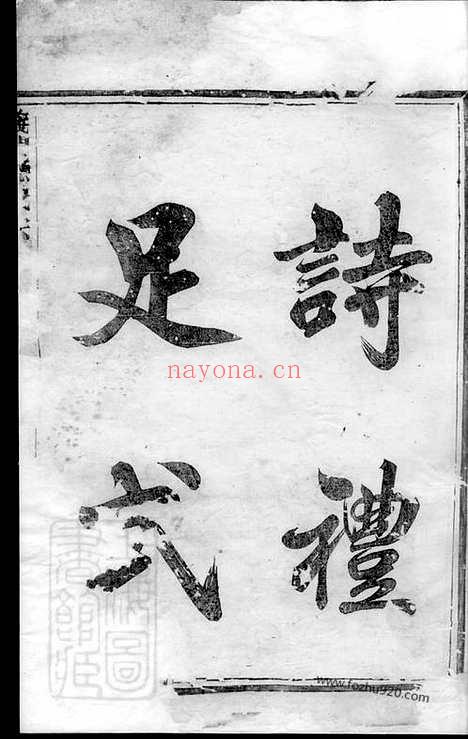 詩禮
足式
nayona.cn
www.fozhu920.com